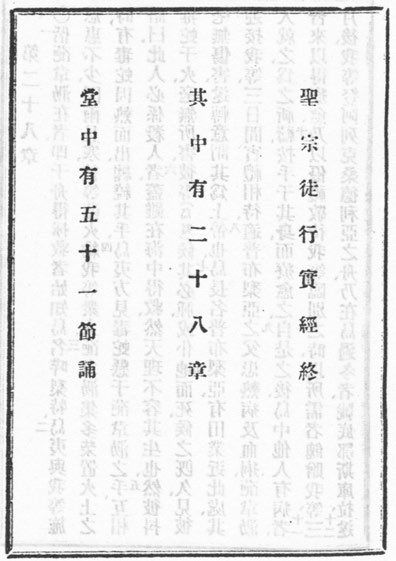 聖宗徒行實經終
其中有二十八章
堂中有五十一節誦